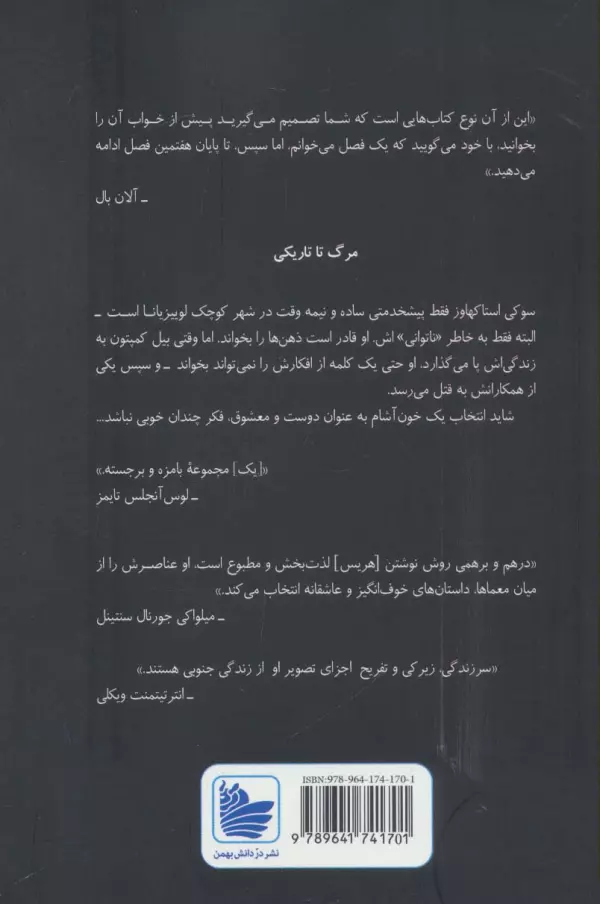 «این از آن نوع کتاب‌هایی است که شما تصمیم می‌گیرید پیش از خواب آن را
بخوانید، با خود می‌گویید که یک فصل می‌خوانم، اما سپس، تا پایان هفتمین فصل ادامه
می‌دهید.»
ـ آلان بال
مرگ تا تاریکی
سوکی استاکهاوز فقط پیشخدمتی ساده و نیمه وقت در شهر کوچک لوییزیانا است ـ
البته فقط به خاطر «ناتوانی» اش. او قادر است ذهن‌ها را بخواند. اما وقتی بیل کمپتون به
زندگی‌اش پا می‌گذارد، او حتی یک کلمه از افکارش را نمی‌تواند بخواند ـ و سپس یکی
از همکارانش به قتل می‌رسد.
شاید انتخاب یک خون‌آشام به عنوان دوست و معشوق، فکر چندان خوبی نباشد...
«[یک] مجموعۀ بامزه و برجسته.»
ـ لوس‌آنجلس تایمز
«درهم و برهمی روش نوشتن [هریس] لذت‌بخش و مطبوع است. او عناصرش را از
میان معماها، داستان‌های خوف‌انگیز و عاشقانه انتخاب می‌کند.»
ـ میلواکی جورنال سنتینل
«سرزندگی، زیرکی و تفریح اجزای تصویر او از زندگی جنوبی هستند.»
ـ انترتیتمنت ویکلی
ISBN:978-964-174-170-1
9 789641 741701
نشر درّ دانش بهمن